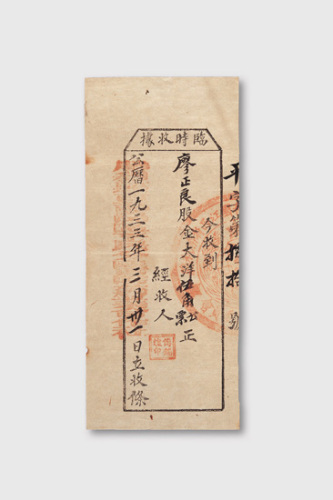 臨時收據
平字第拾拾號
今收到
廖正良股金大洋伍角正
經收人
公曆一九三三年三月卅一日立收條